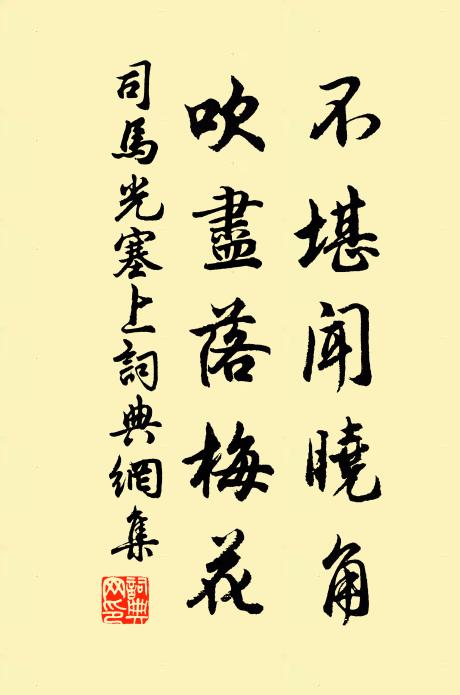 不堪聞曉角
吹盡落梅花
司馬光塞上詞典網集
詞典網印